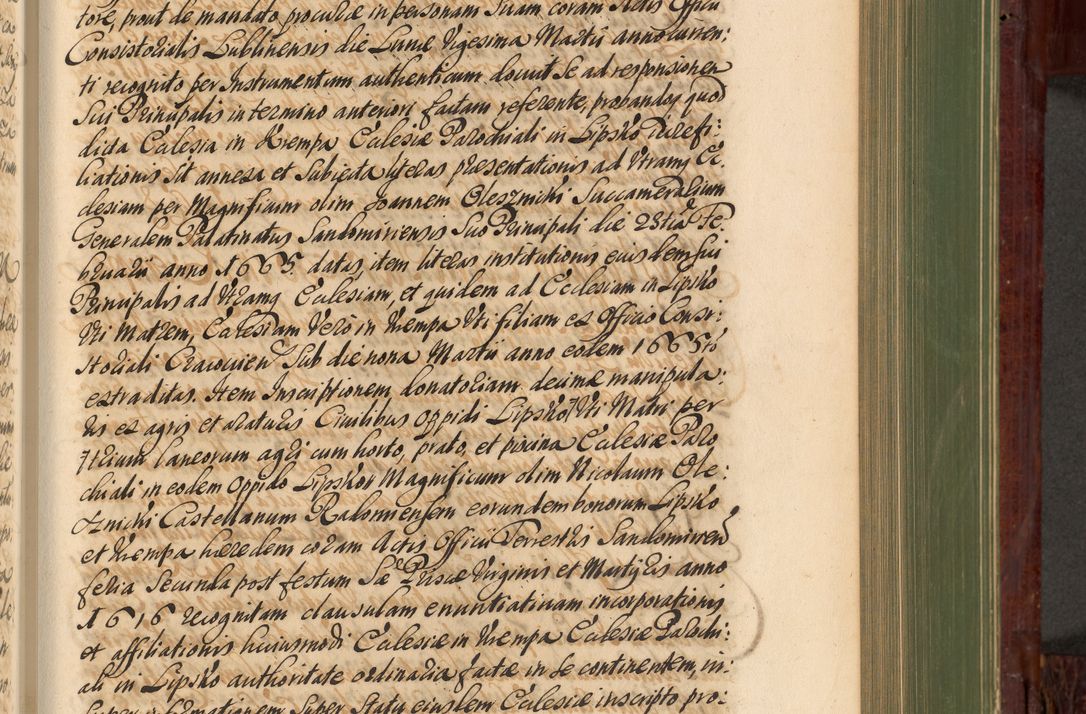 tore, prout de mandato procurae in personam suam coram Actis Officii
Consistorialis Lublinensis die Lunae Vigesima Martii anno curren:
ti recognito per Instrumentum authenticum docuit se ad responsionem
sui Principalis in termino anteriori factam referente, probandoq quod
dicta Ecclesia in Krempa Ecclesiae Parochiali in Lipsko jure fi:
liationis sit annexa et subjecta lyteras praesentationis ad Utramq Ec:
clesiam per Magnificum olim Joannem Olesznicki Succamerarium
Generalem Palatinatus Sandomiriensis suo Principali die 23tia Fe:
bruarii anno 1665 datas, item literas institutionis eiusdem sui
Principalis ad Utramq Ecclesiam, et quidem ad Ecclesiam in Lipsko
Uti Matrem, Ecclesiam Vero in Krempa Uti filiam ex Officio Consi:
storiali Cracovien sub die nona Martii anno eodem 1665to
extraditas. Item Inscriptionem donatoriam decimae manipula:
lis ex agris et araturis Civilibus oppidi Lipsko Uti Matri per
Trium laneorum agri cum horto, prato, et piscina Ecclesiae Paro
chiali in eodem oppido Lipsko Magnificum olim Nicolaum Ole:
sznicki Castellanum Radomiensem eorundem bonorum Lipsko
et Krempa haeredem coram Actis Officii Terrestris Sandomirien
feria Secunda post festum Sae Priscae Virginis et Martyris anno
1616 recognitam clausulam enuntiativam incorporationis
et affiliationis huiusmodi Ecclesiae in Krempa Ecclesiae Parochi:
ali in Lipsko authoritate ordinaria factae in se continentem, in:
super informationem super Statu eiusdem Ecclesiae inscripto pro: